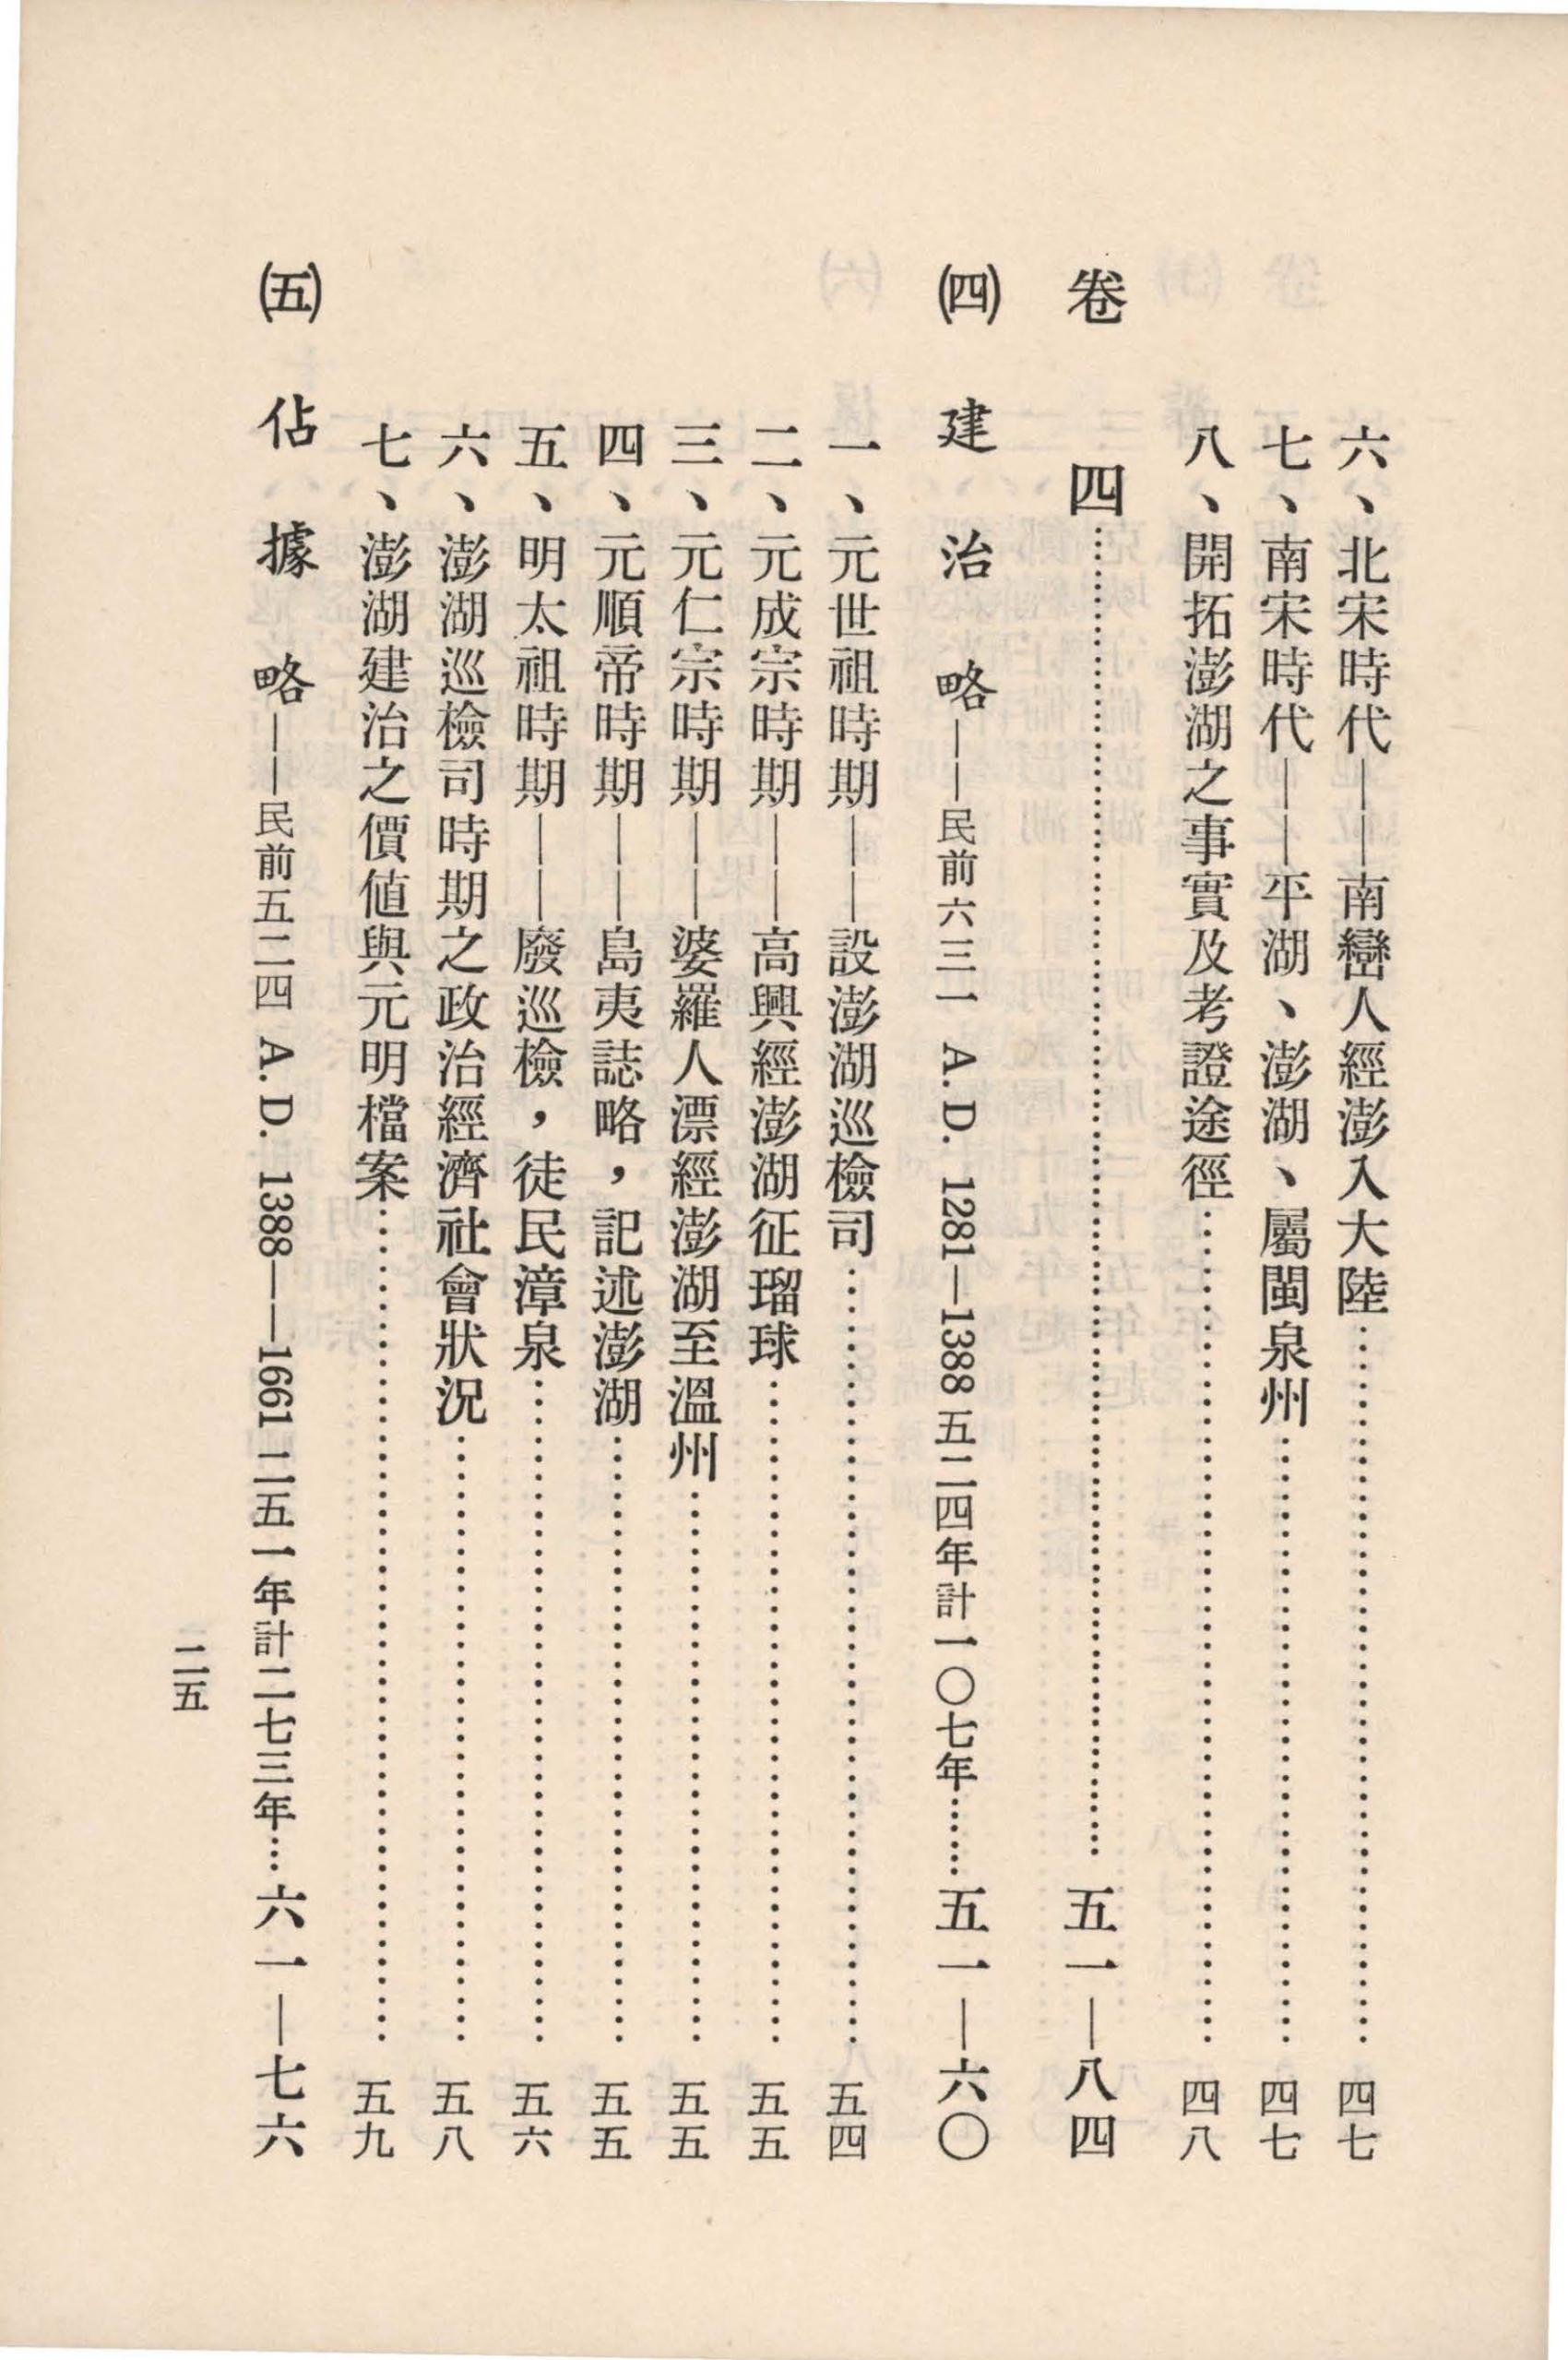 六、北宋時代——南巒人經澎入大陸……………………四七
七、南宋時代——平湖、澎湖、屬閩泉州……………………四七
八、開拓澎湖之事實及考證途徑……………………四八
卷四……………………五一—八四
㈣建治略——民前六三一 A.D. 1281—1388 五二四年計一〇七年……五一—六〇
一、元世祖時期——設澎湖巡檢司……………………五四
二、元成宗時期——高興經澎湖征瑠球……………………五五
三、元仁宗時期——婆羅人漂經澎湖至溫州……………………五五
四、元順帝時期——島夷誌略，記述澎湖……………………五五
五、明太祖時期——廢巡檢，徒民漳泉……………………五六
六、澎湖巡檢司時期之政治經濟社會狀況……………………五八
七、澎湖建治之價値與元明檔案……………………五九
㈤佔據略——民前五二四 A.D. 1388——1661 二五一年計二七三年…六一—七六
二五